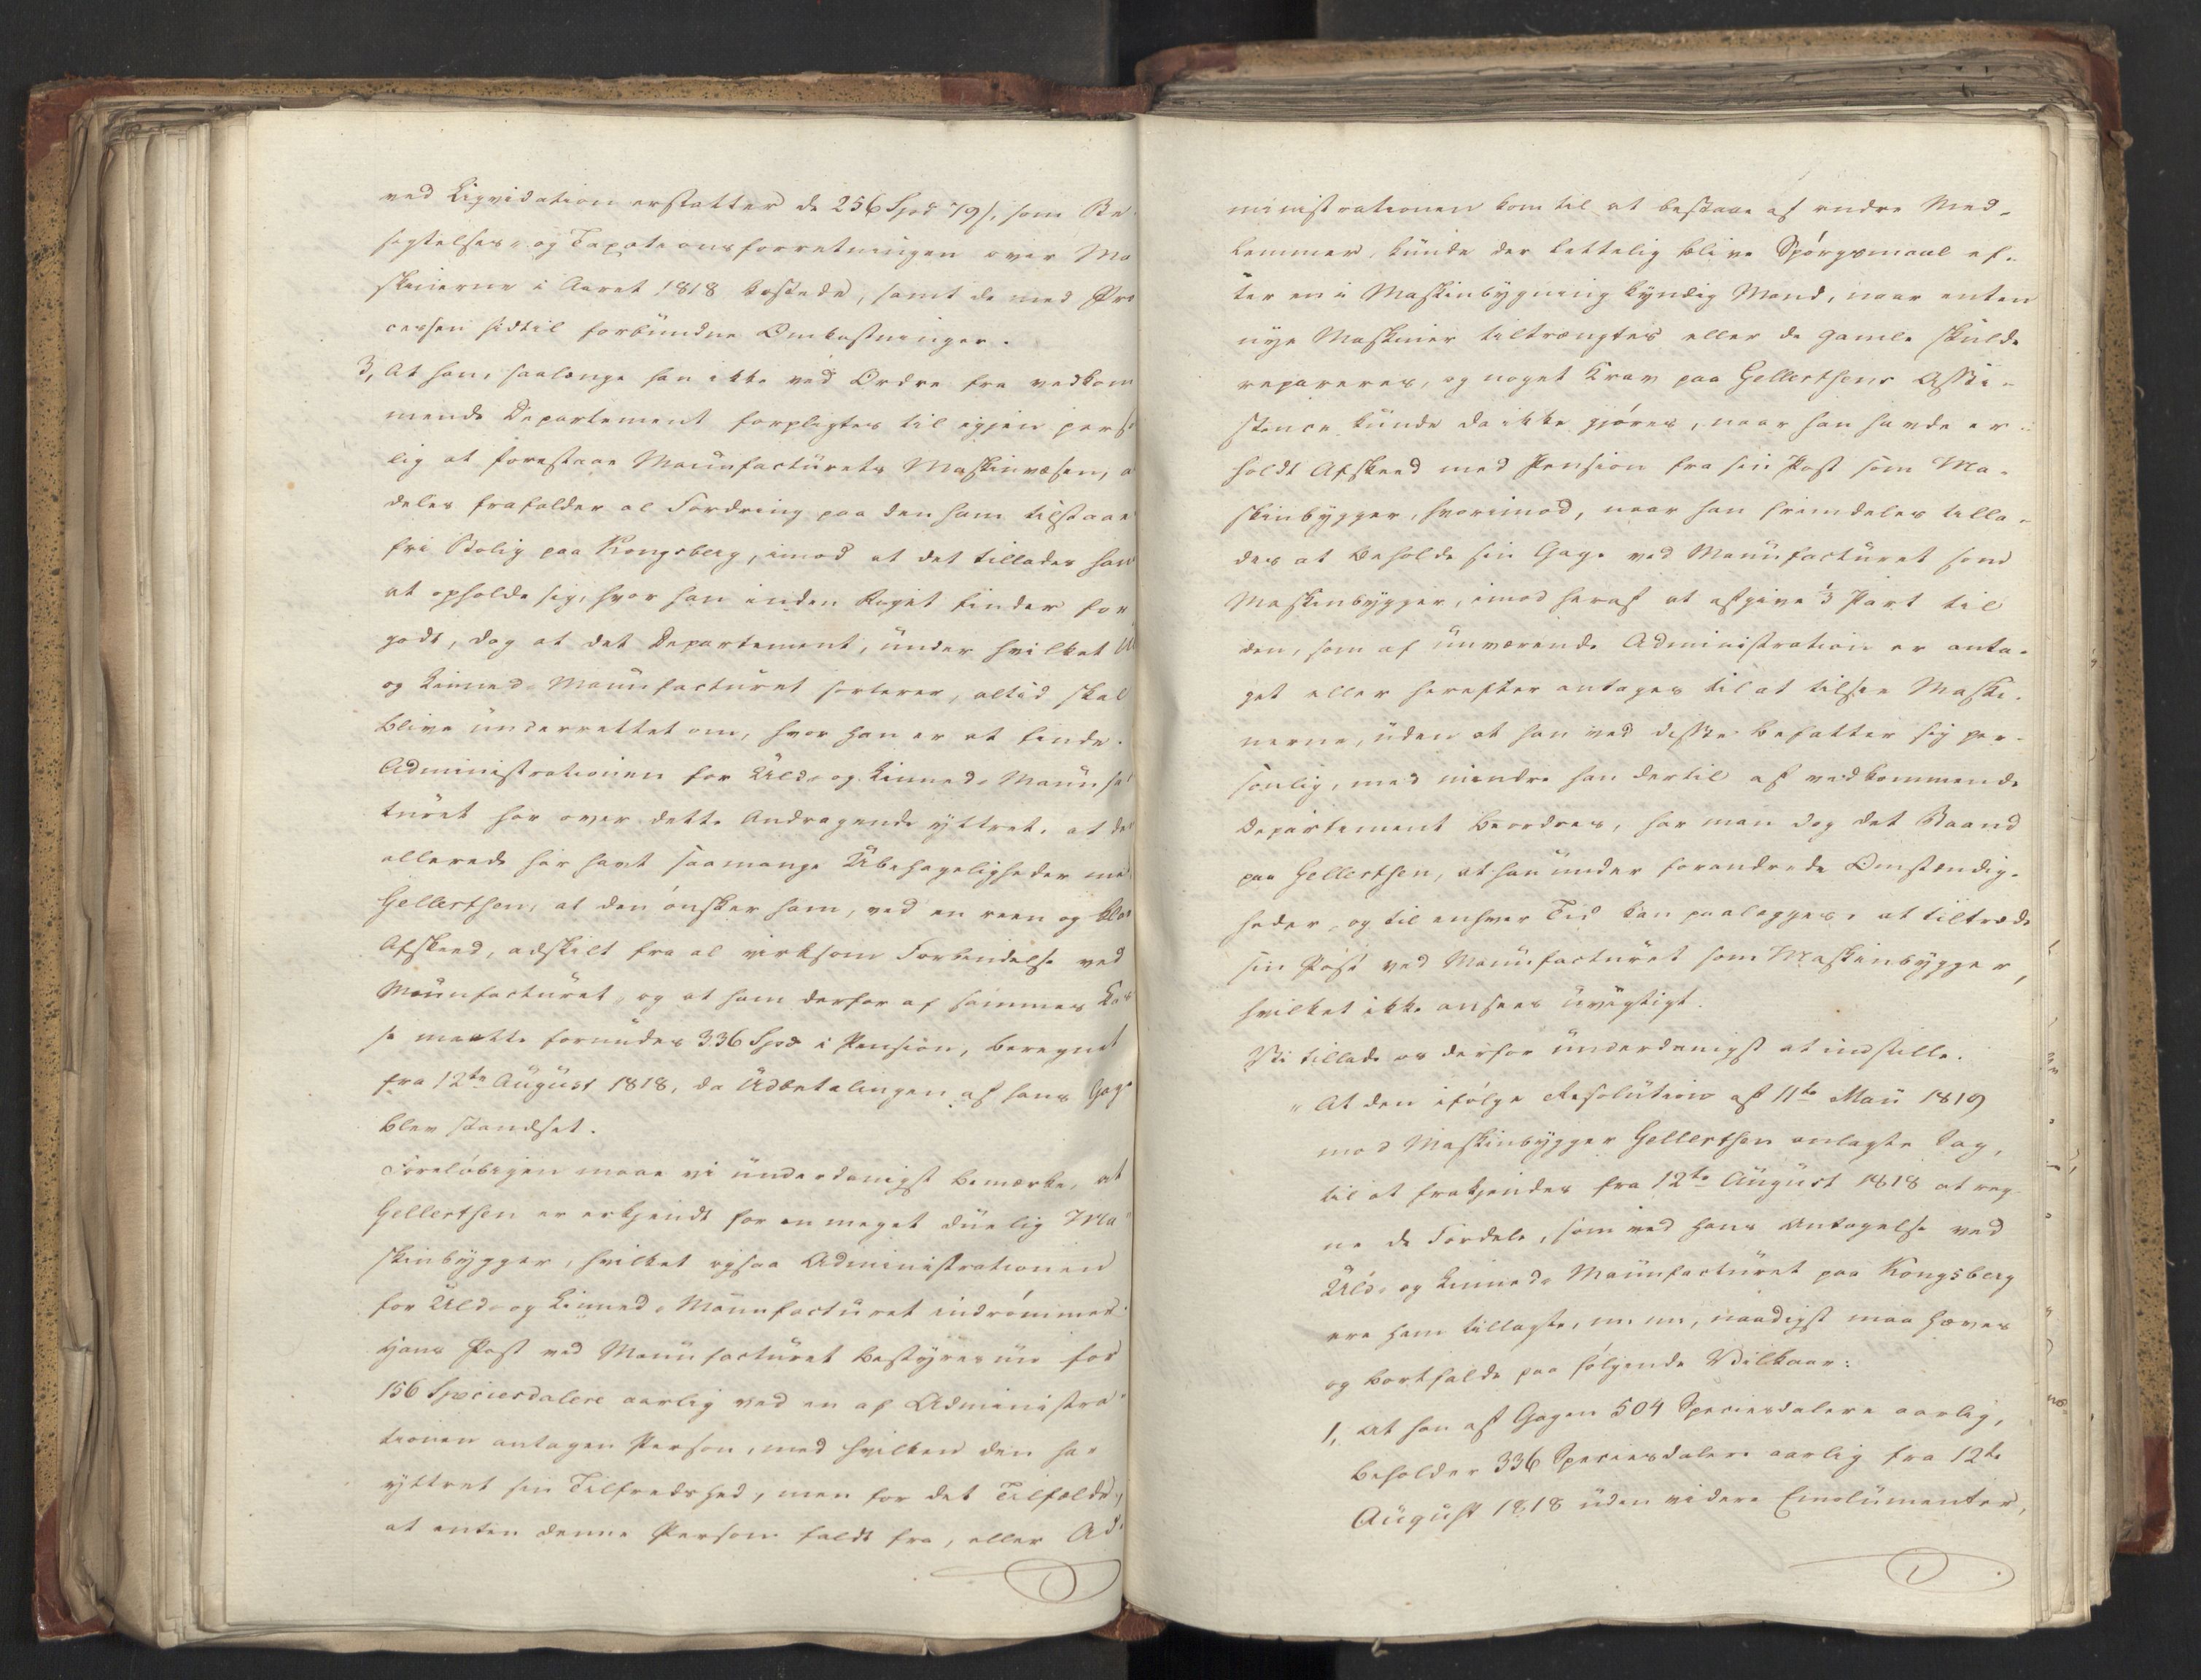 ved Liqvidation erstatter de 256 Spd 79 s, som Be-
sigtelses- og Taxationsforretningen over Ma
skinerne i Aaret 1818 kostede, samt de med Pro
cessen hidtil forbundne Omkostninger.
3, At han, saalænge han ikke ved Ordre fra vedkom
mende Departement forpligtes til igjen person
lig at forestaae Manufacturets Maskinvæsen, a
deles frafalder al Fordring paa den ham tilstaae
fri Bolig paa Kongsberg, imod at det tillades ham
at opholde sig, hvor han inden Riget finder for
godt, dog at det Departement, under hvilket Ul
og Linned-Manufacturet sorterer, altid skal
blive underrettet om, hvor han er at finde.
Administrationen for Uld- og Linned-Manufac
turet har over dette Andragende yttret, at den
allerede har havt saamange Ubehageligheder med
Gellertsen, at den ønsker ham, ved en reen og klar
Afskeed, adskilt fra al virksom Forbindelse ved
Manufacturet, og at ham derfor af sammes Kas
se maatte forundes 336 Spd i Pension, beregnet
fra 12te August 1818, da Udbetalingen af hans Gage
blev standset.
Foreløbigen maae vi underdanigst bemærke, at
Gellertsen er erkjendt for en meget duelig Ma
skinbygger, hvilket ogsaa Administrationen
for Uld- og Linned-Manufacturet indrømmer.
Hans Post ved Manufacturet bestyres nu for
156 Speciesdalere aarlig ved en af Administra-
tionen antagen Person, med hvilken den har
yttret sin Tilfredshed, men for det Tilfælde,
at enten denne Person faldt fra, eller Ad-
ministrationen kom til at bestaae af andre Med-
lemmer, kunde der lettelig blive Spørgsmaal ef-
ter en i Maskinbygning kyndig Mand, naar enten
nye Maskiner tiltrængtes eller de gamle skulde
repareres, og noget Krav paa Gellertsens Assi-
stence kunde da ikke gjøres, naar han havde er-
holdt Afskeed med Pension fra sin Post som Ma-
skinbygger, hvorimod, naar han fremdeles tilla-
des at beholde sin Gage ved Manufacturet som
Maskinbygger, imod heraf at afgive ⅓ Part til
den, som af nuværende Administration er anta-
get eller herefter antages til at tilsee Maski-
nerne, uden at han ved disse befatter sig per-
sonlig, med mindre han dertil af vedkommende
Departement beordres, har man dog det Baand
paa Gellertsen, at han under forandrede Omstændig-
heder, og til enhver Tid kan paalægges, at tiltræde
sin Post ved Manufacturet som Maskinbygger,
hvilket ikke ansees uvigtigt.
Vi tillade os derfor underdanigst at indstille.
"At den ifølge Resolution af 11te Mai 1819
mod Maskinbygger Gellertsen anlagte Sag,
til at frakjendes fra 12te August 1818 at reg-
ne de Fordele, som ved hans Antagelse ved
Uld- og Linned-Manufacturet paa Kongsberg
ere ham tillagte, m: m:, naadigst maa hæves
og bortfalde paa følgende Vilkaar:
1, at han af Gagen 504 Speciesdalere aarlig,
beholder 336 Speciesdalere aarlig fra 12te
August 1818 uden videre Emolumenter,